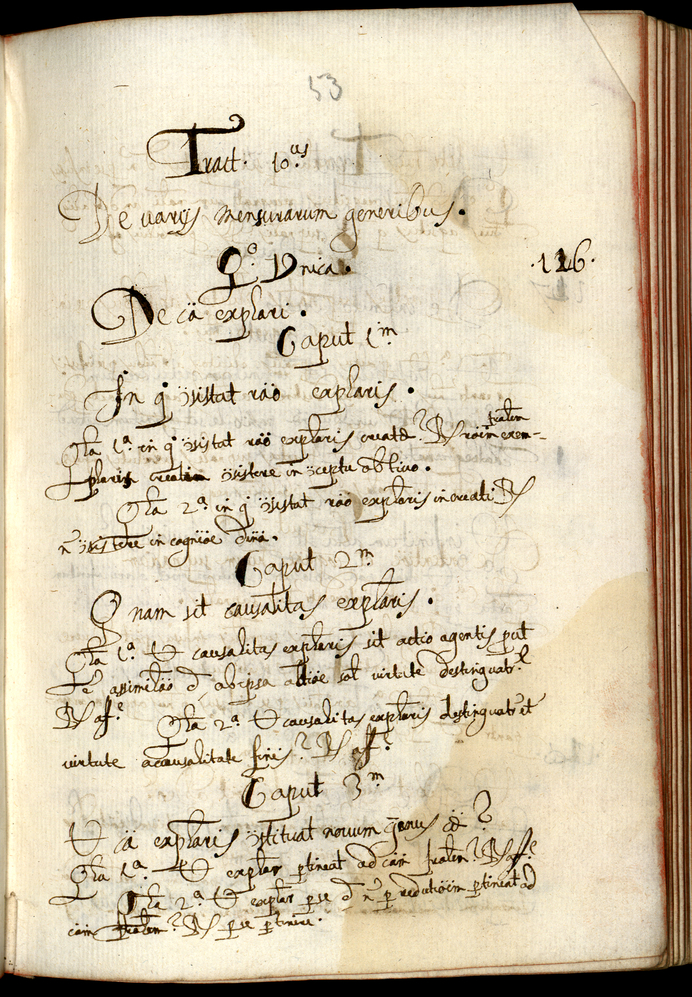 53
Tract. 10.us
De varijs mensurarum generibus.
Q.o Vnica. .126.
De cä explari.
Caput 1.m
In q̃ ↄ̈sistat räo explaris.
Qta 1.a in q̃ ↄ̈sistat räo explaris creatæ? R räem exem-
fralem
plaris creatim ↄ̈sistere in ↄ̈ceptu obtivo.
Qta 2.a in q̃ ↄ̈sistat räo explaris increati R
n̄ ↄ̈sistere in cognïoe dinä.
Caput 2.m
Qnam sit causalitas explaris.
Qta 1.a U causalitas explaris sit actio agentis put
assimiläo ab ipsa actïoe sol virtute destinguatr.?
R af.e Qta 2.a U causalitas explaris destinguatr et
virtute a causalitate finis? R af.e
Caput 3.m
U cä explaris ↄ̈stituat nouum genus cæ?
Qta 1.a U explar ptineat ad cäm fralem? R af.e
Qta 2.a U explar p se n̄ p reductïoem ptineat ad
cäm fralem? R p se ptinere.